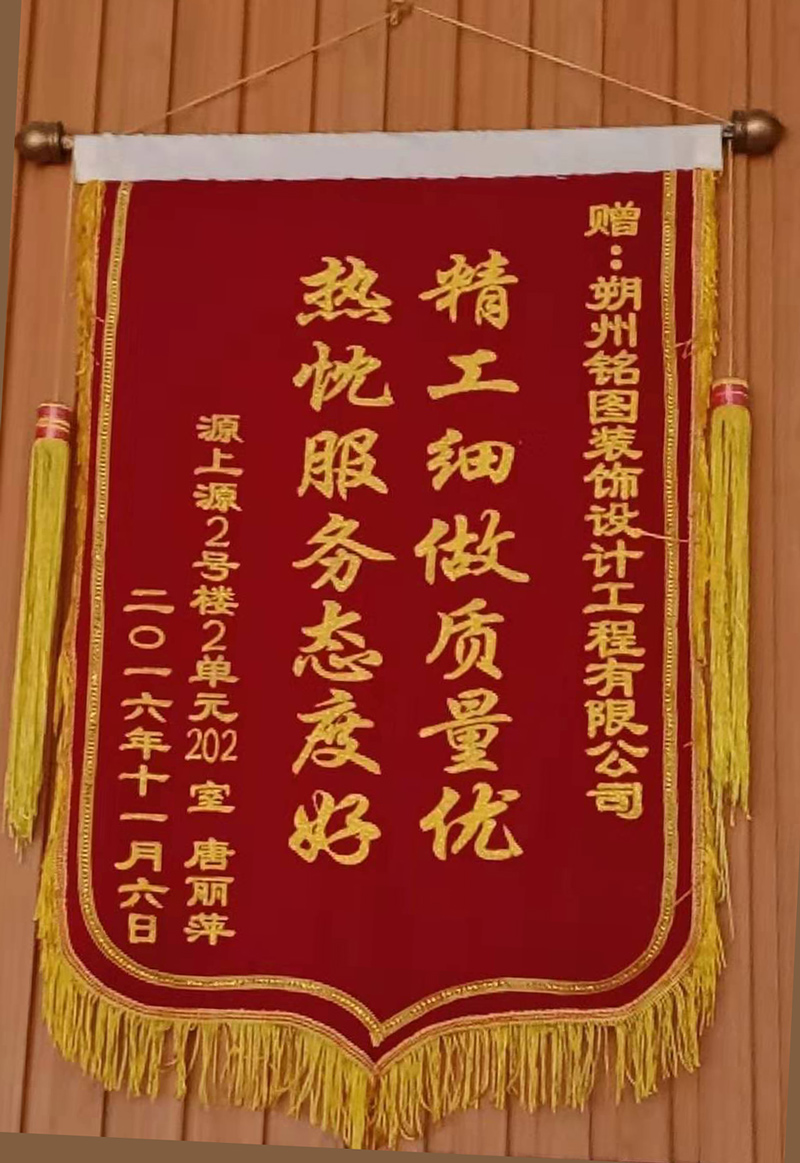 赠：朔州铭图装饰设计工程有限公司
精工细做质量优
热忱服务态度好
源上源2号楼2单元202室 唐丽萍
二〇一六年十一月六日